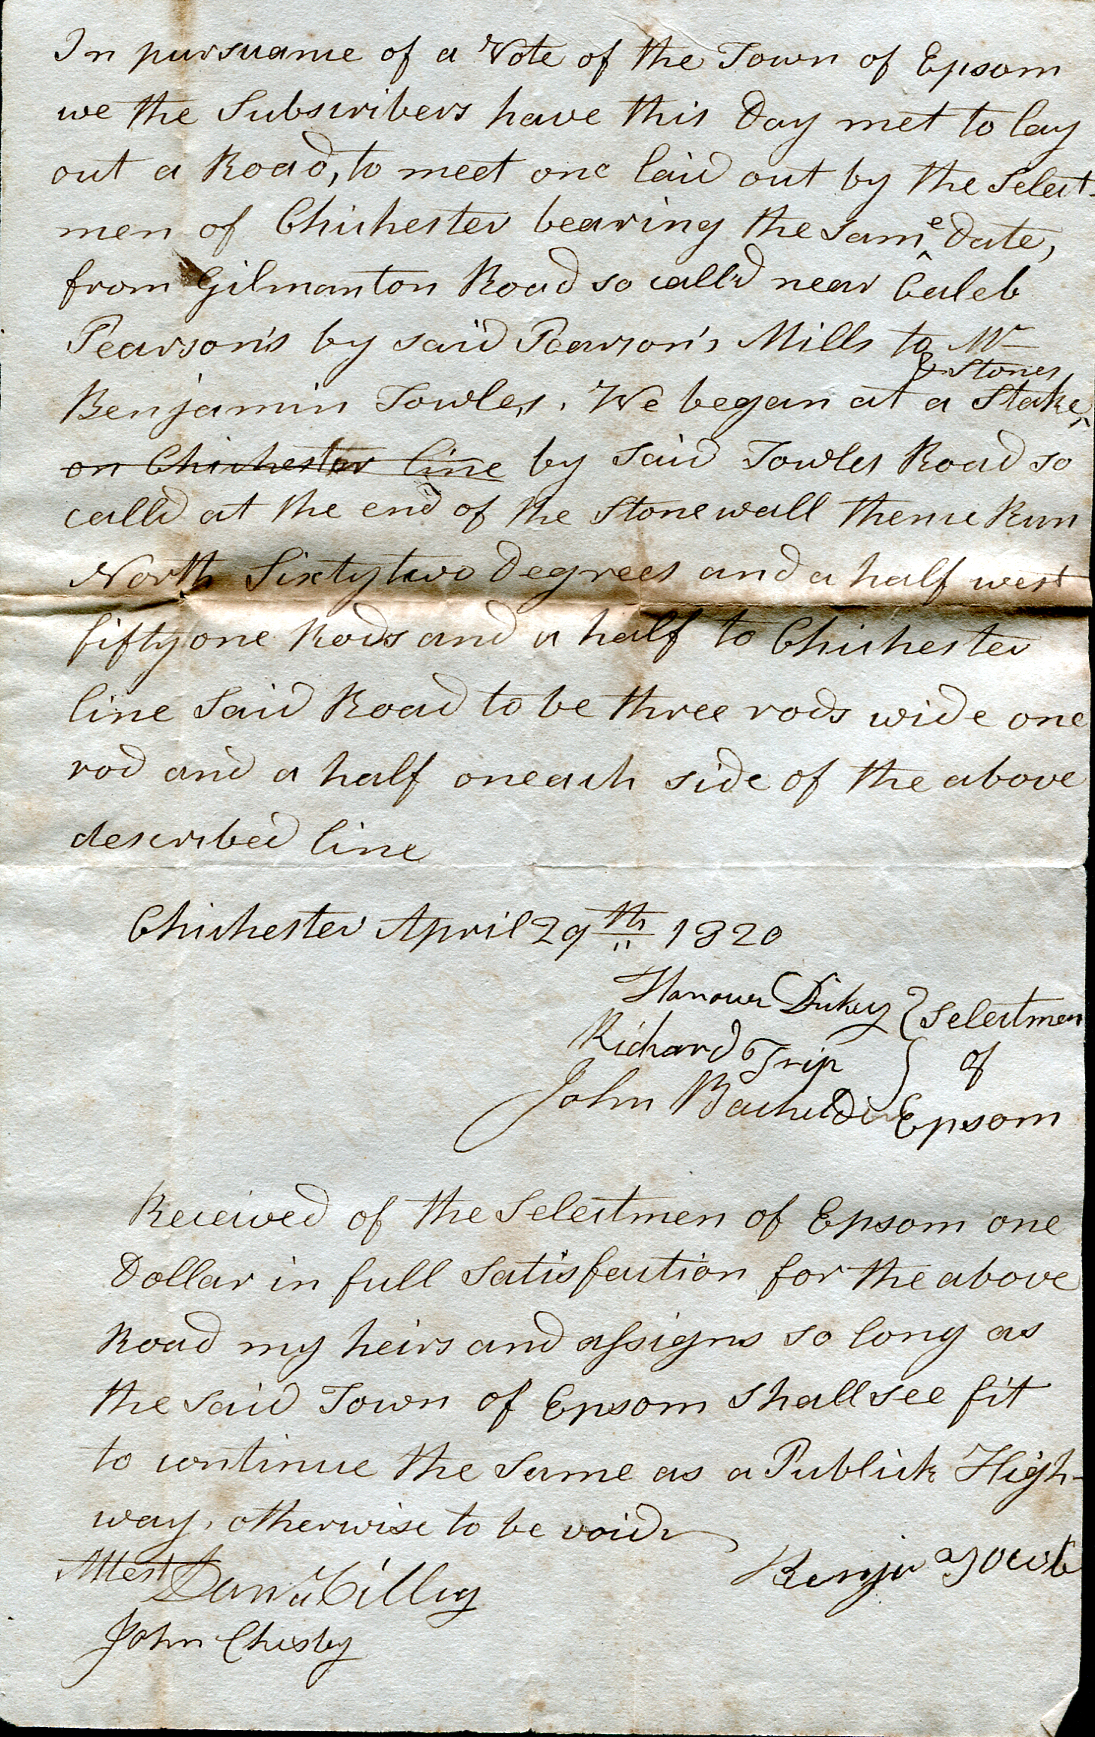 In pursuance of a Vote of the Town of Epsom
we the Subscribers have this Day met to lay
out a Road, to meet one laid out by the Select-
men of Chichester bearing the Same Date,
from Gilmanton Road so calld near Caleb
Pearson's by said Pearson's Mills to Mr
Benjamin Towles. We began at a Stake & Stones
on Chichester line by Said Towles Road so
calld at the end of the Stonewall thence Run
North Sixtytwo Degrees and a half west
fiftyone Rods and a half to Chichester
line Said Road to be three rods wide one
rod and a half on each side of the above
described line
Chichester April 29th 1820
Hanover Dickey } Selectmen
Richard Trip } of
John Bachelder Epsom
Received of the Selectmen of Epsom one
Dollar in full Satisfaction for the above
Road my heirs and assigns so long as
the Said Town of Epsom shall see fit
to continue the Same as a Publick High-
way, otherwise to be void
Attest Danl Cilley
Benja Towle
John Chesley